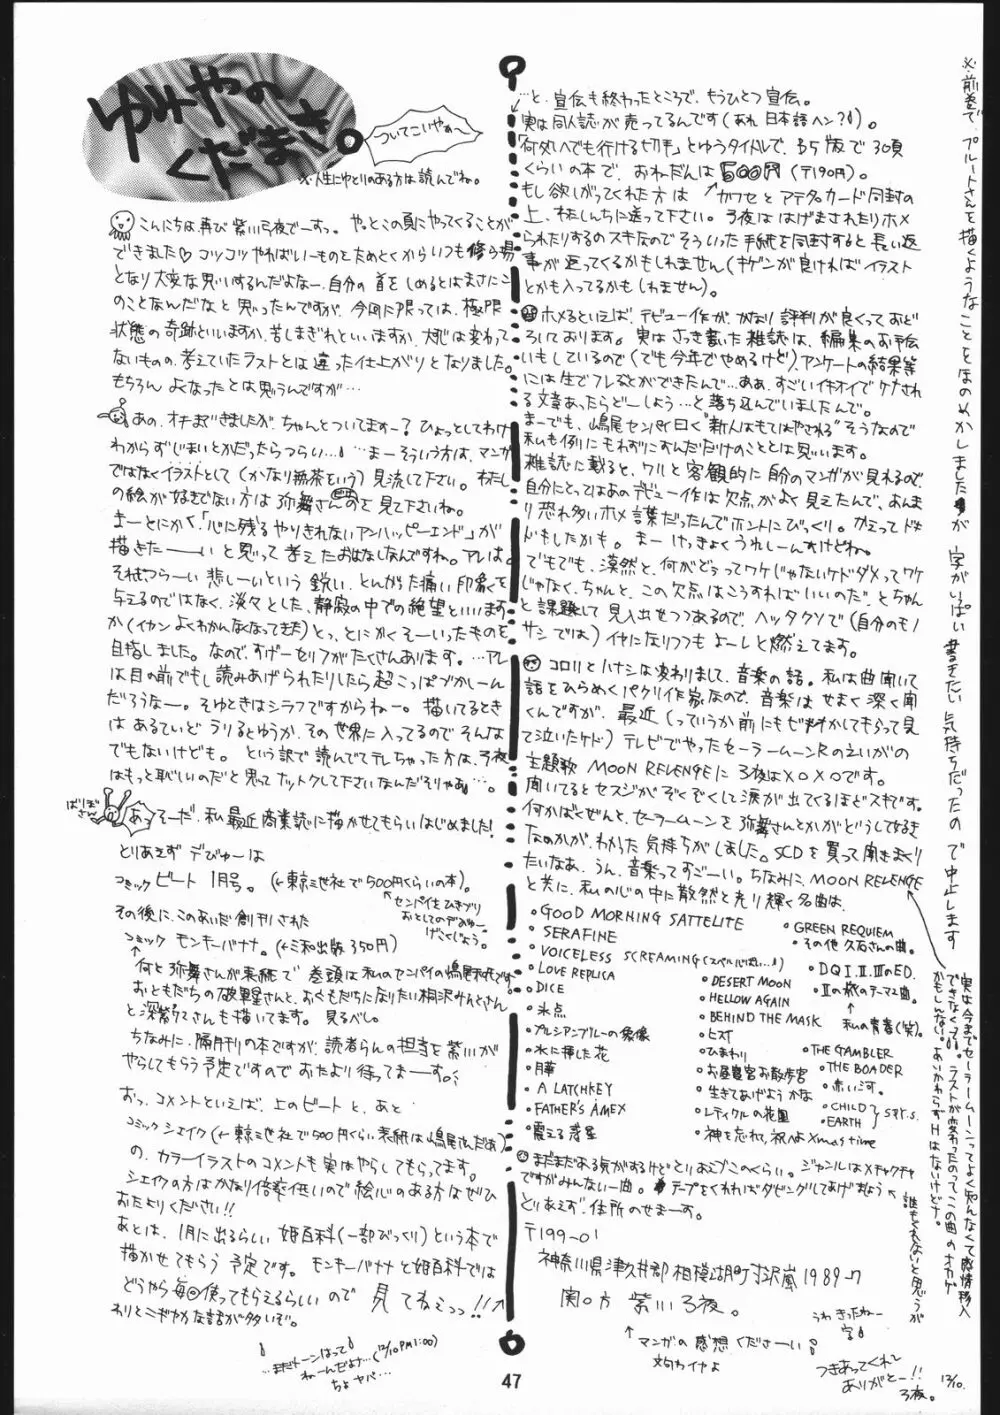 ゆみやの
くだまき。
ついてこいやぁ〜
※人生にゆとりのある方は読んでね。
こんにちは再び紫川弓夜でーすっ。やっとこの頁にやってくることが
できました♡コツコツやればいーものをためとくからいつも修ら場
となり大変な思いするんだよなー、自分の首をしめるとはまさにこ
のことなんだなと思ったんですが、今回に限っては、極限
状態の奇跡といいますか、苦しまぎれといいますか、大じは変わって
ないものの、考えていたラストとは違った仕上がりとなりました。
もちろんよくなったとは思うんですが…
あの、オチまできましたが、ちゃんとついてますー?ひょっとしてわけ
わからずじまいとかだったらつらい…♪…まーそういう方は、マンガ
ではなくイラストとして(かなり無茶という)見流して下さい。わたし
の絵が好きでない方は弥舞さんのを見て下さいね。
まーとにかく「心に残るやりきれないアンハッピーエンド」が
描きたーーいと思って考えたおはなしなんですね。アレは。
それもつらーい悲しーいという鋭い、とんがった痛い印象を
与えるのではなく、淡々とした、静寂の中での絶望といいます
か(イカンよくわかんなくなってきた)とっ、とにかくそーいったものを
目指しました。なので、すげーセリフがたくさんあります。…アレ
は目の前でもし読みあげられたりしたら超こっぱづかしーん
だろうなー。そゆときはシラフですからねー。描いてるとき
はあるていどうりるとゆうか、その世界に入ってるのでそんな
でもないけども。という訳で読んでてテレちゃった方は、弓夜
はもっと恥じいのだと思ってナットクして下さいなんだそりゃあ…。
ばりぼさん
あっそーだ、私最近商業誌に描かせてもらいはじめました!
とりあえずデびゅーは
コミックビート1月号。(←東京三世社で500円くらいの本)。
センパイ住ひきづり
おとしてのデびゅー。
げこくじょう。
その後に、このあいだ創刊された
コミックモンキーバナナ。(←三和出版350円)
何と弥舞さんが表紙で巻頭は私のセンパイの嶋尾和さんです。
おともだちの破軍星さんと、おともだちになりたい桐沢みんとさん
と深紫タマさんも描いてます。見るべし。
ちなみに、隔月刊の本ですが、読者らんの担当を紫川が
やらしてもらう予定ですのでおたより待ってまーす。
おっ、コメントといえば、上のビートと、あと
コミックシェイク(←東京三世社で500円くらい表紙は嶋尾さんだあ)
の、カラーイラストのコメントも実はやらしてもらってます。
シェイクの方はかなり倍率低いので絵心のある方はぜひ
おたよりください!!
あとは、1月に出るらしい姫百科(一部びっくり)という本で
描かせてもらう予定です。モンキーバナナと姫百科では
どうやら毎回使ってもらえるらしいので見てねえっっ!!
わりとニギやかな話が多いぞ。
…まだトーンはって
ねーんだよナ…(12/10PM1:00)
ちょヤバ…
…と、宣伝も終わったところで、もうひとつ宣伝。
実は同人誌が売ってるんです(あれ日本語ヘン?)。
「何処へでも行ける切手」とゆうタイトルで、B5版で30頁
くらいの本で、おねだんは500円(〒190円)。
もし欲しがってくれた方は カワセとアテナカード同封の
上、わたしんちに送って下さい。弓夜ははげまされたりホメ
られたりするのスキなのでそういった手紙を同封すると長い返
事が返ってくるかもしれません(キゲンが良ければイラスト
とかも入ってるかもしれません)。
ホメるといえば、デビュー作が、かなり評判が良くっておど
ろいております。実はさっき書いた雑誌は、編集のお手伝
いもしているので(でも今年でやめるけど)、アンケートの結果等
には生でフレることができたんで…ああ、すごいイキオイでケナされ
る文章あったらどーしよう…と落ち込んでいましたんで。
まーでも、嶋尾センパイ曰く“新人はもてはやされる”そうなので
私も例にもれずにすんだだけのこととは思います。
雑誌に載ると、ワリと客観的に自分のマンガが見れるので、
自分にとってはあのデビュー作は欠点がよく見えたんで、あんま
り恐れ多いホメ言葉だったんでホントにびっくり。かえってドキ
ドキもしたかも。まーけっきょくうれしーんすけどね。
でもでも、漠然と、何がどうってワケじゃないケドダメってワケ
じゃなく、ちゃんと、この欠点はこうすればいいのだ、とちゃん
と課題して見い出せつつあるので、ヘッタクソで(自分のモノ
サシでは)イヤになりつつもよーしと燃えてます。
コロリとハナシは変わりまして、音楽の話。私は曲聞いて
話をひらめくパクリ作家なので、音楽はせまく深く聞
くんですが、最近(っていうか前にもビデオかしてもらって見
て泣いたケド)テレビでやったセーラームーンRのえいがの
主題歌MOON REVENGEに弓夜は×○×○です。
聞いてるとセスジがぞくぞくして涙が出てくるほどスキです。
何かばくぜんと、セーラームーンを弥舞さんとかがどうして好き
なのかが、わかった気持ちがしました。SCDを買って聞きまくり
たいなあ、うん、音楽ってすごーい。ちなみに、MOON REVENGE
と共に、私の心の中に散然と光り輝く名曲は、
・GOOD MORNING SATTELITE
・SERAFINE
・VOICELESS SCREAMING(スペルひどい…♪)
・LOVE REPLICA
・DICE
・氷点
・プルシアンブルーの肖像
・水に挿した花
・月華
・A LATCHKEY
・FATHER'S AMEX
・震える惑星
・DESERT MOON
・HELLOW AGAIN
・BEHIND THE MASK
・ヒズイ
・ひまわり
・お昼寝宮お散歩宮
・生きてあげようかな
・レティクルの花園
・神を忘れて、祝へよXmas time
・GREEN REQUIEM
・その他久石さんの曲。
・DQⅠ.Ⅱ.ⅢのED.
・Ⅱの旅のテーマ2曲。
↑私の青春(笑)。
・THE GAMBLER
・THE BOADER
・赤い河。
・CHILD
・EARTH
まだまだある気がするけどとりあえずこのくらい。ジャンルはメチャクチャ
ですがみんないー曲。テープをくれればダビングしてあげましょう
誰もくれないと思うが
とりあえず、住所のせまーす。
〒199-01
神奈川県津久井郡相模湖町寸沢嵐1989-7
関口方 紫川弓夜。
↑マンガの感想くださーい!
文句わイヤよ
うわきったねー
字♪
つきあってくれて
ありがとー!!
弓夜。
12/10.
※前巻で、プルートさんを描くようなことをほのめかしましたが字がいっぱい書きたい気持ちだったので中止します
実は今までセーラームーンってよく知んなくて感情移入
できなくって。ラストが変わったのってこの曲のオカゲ
かもしんない。あいかわらずHはないけどナ。
47